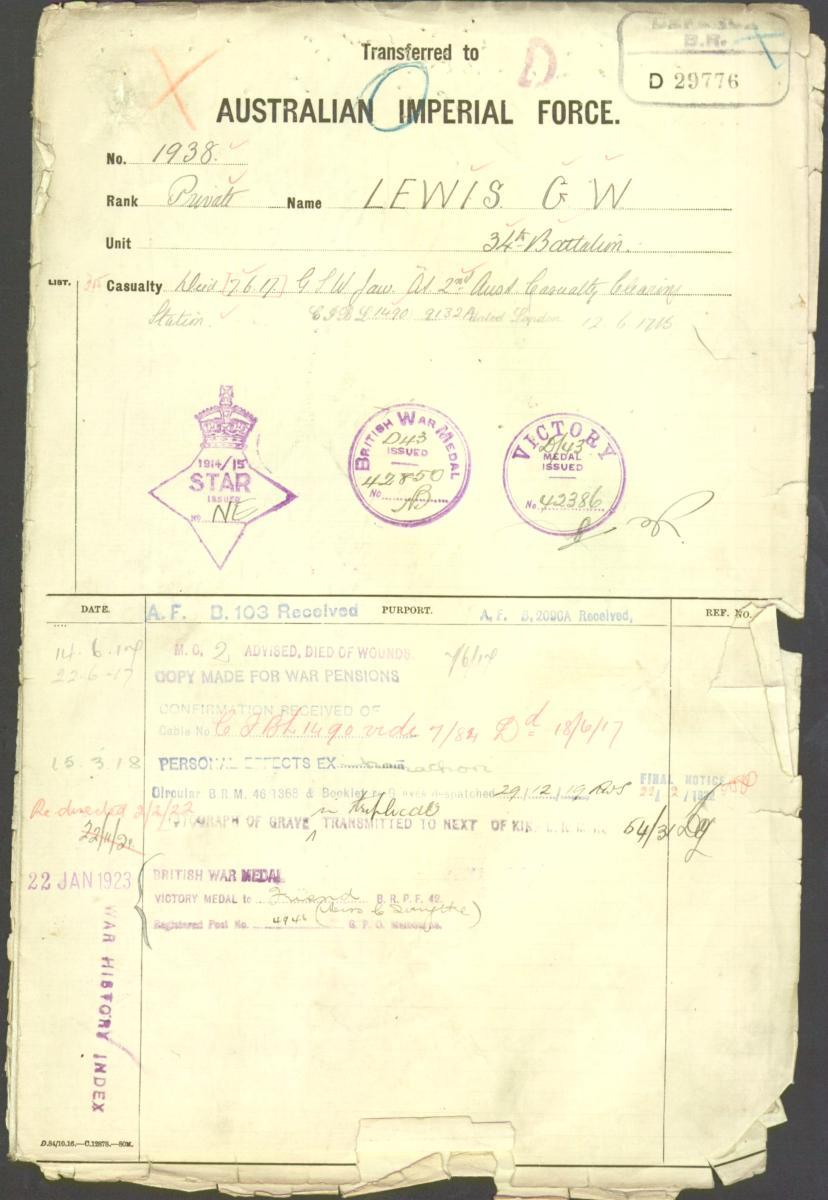 Transferred to
D
B.R.
D 29776
AUSTRALIAN IMPERIAL FORCE.
No. 1938.
Rank Private Name LEWIS G W
Unit 34th Battalion.
LIST. Casualty Died 7.6.17. G S W Jaw. At 2nd Aust Casualty Clearing
Station. 1490 9132A dated London 12.6.17
1914/15
STAR
ISSUED
No NE
BRITISH WAR MEDAL
D43
ISSUED
42850
No
VICTORY
D/43
MEDAL
ISSUED
No. 42386
DATE. A.F. B.103 Received PURPORT. A.F. B.2090A Received, REF. No.
14.6.17 M.C. 2 ADVISED, DIED OF WOUNDS. 7/6/17
22-6-17 COPY MADE FOR WAR PENSIONS
CONFIRMATION RECEIVED OF
Cable No. C I B L 1490 vide 7/84 Dd 18/6/17
15.3.18 PERSONAL EFFECTS EX
Circular B.R.M. 46/1368 & Booklet re Graves despatched 29/12/19 FINAL NOTICE
Re-directed 2/2/22 in triplicate
PHOTOGRAPH OF GRAVE TRANSMITTED TO NEXT OF KIN 54/31
22 JAN 1923 BRITISH WAR MEDAL
VICTORY MEDAL to Friend B.R.P.F. 42.
Registered Post No. 4946 (Miss C Smythe) G.P.O. Melbourne.
WAR HISTORY INDEX
D.84/10.16.—C.12878.—50M.